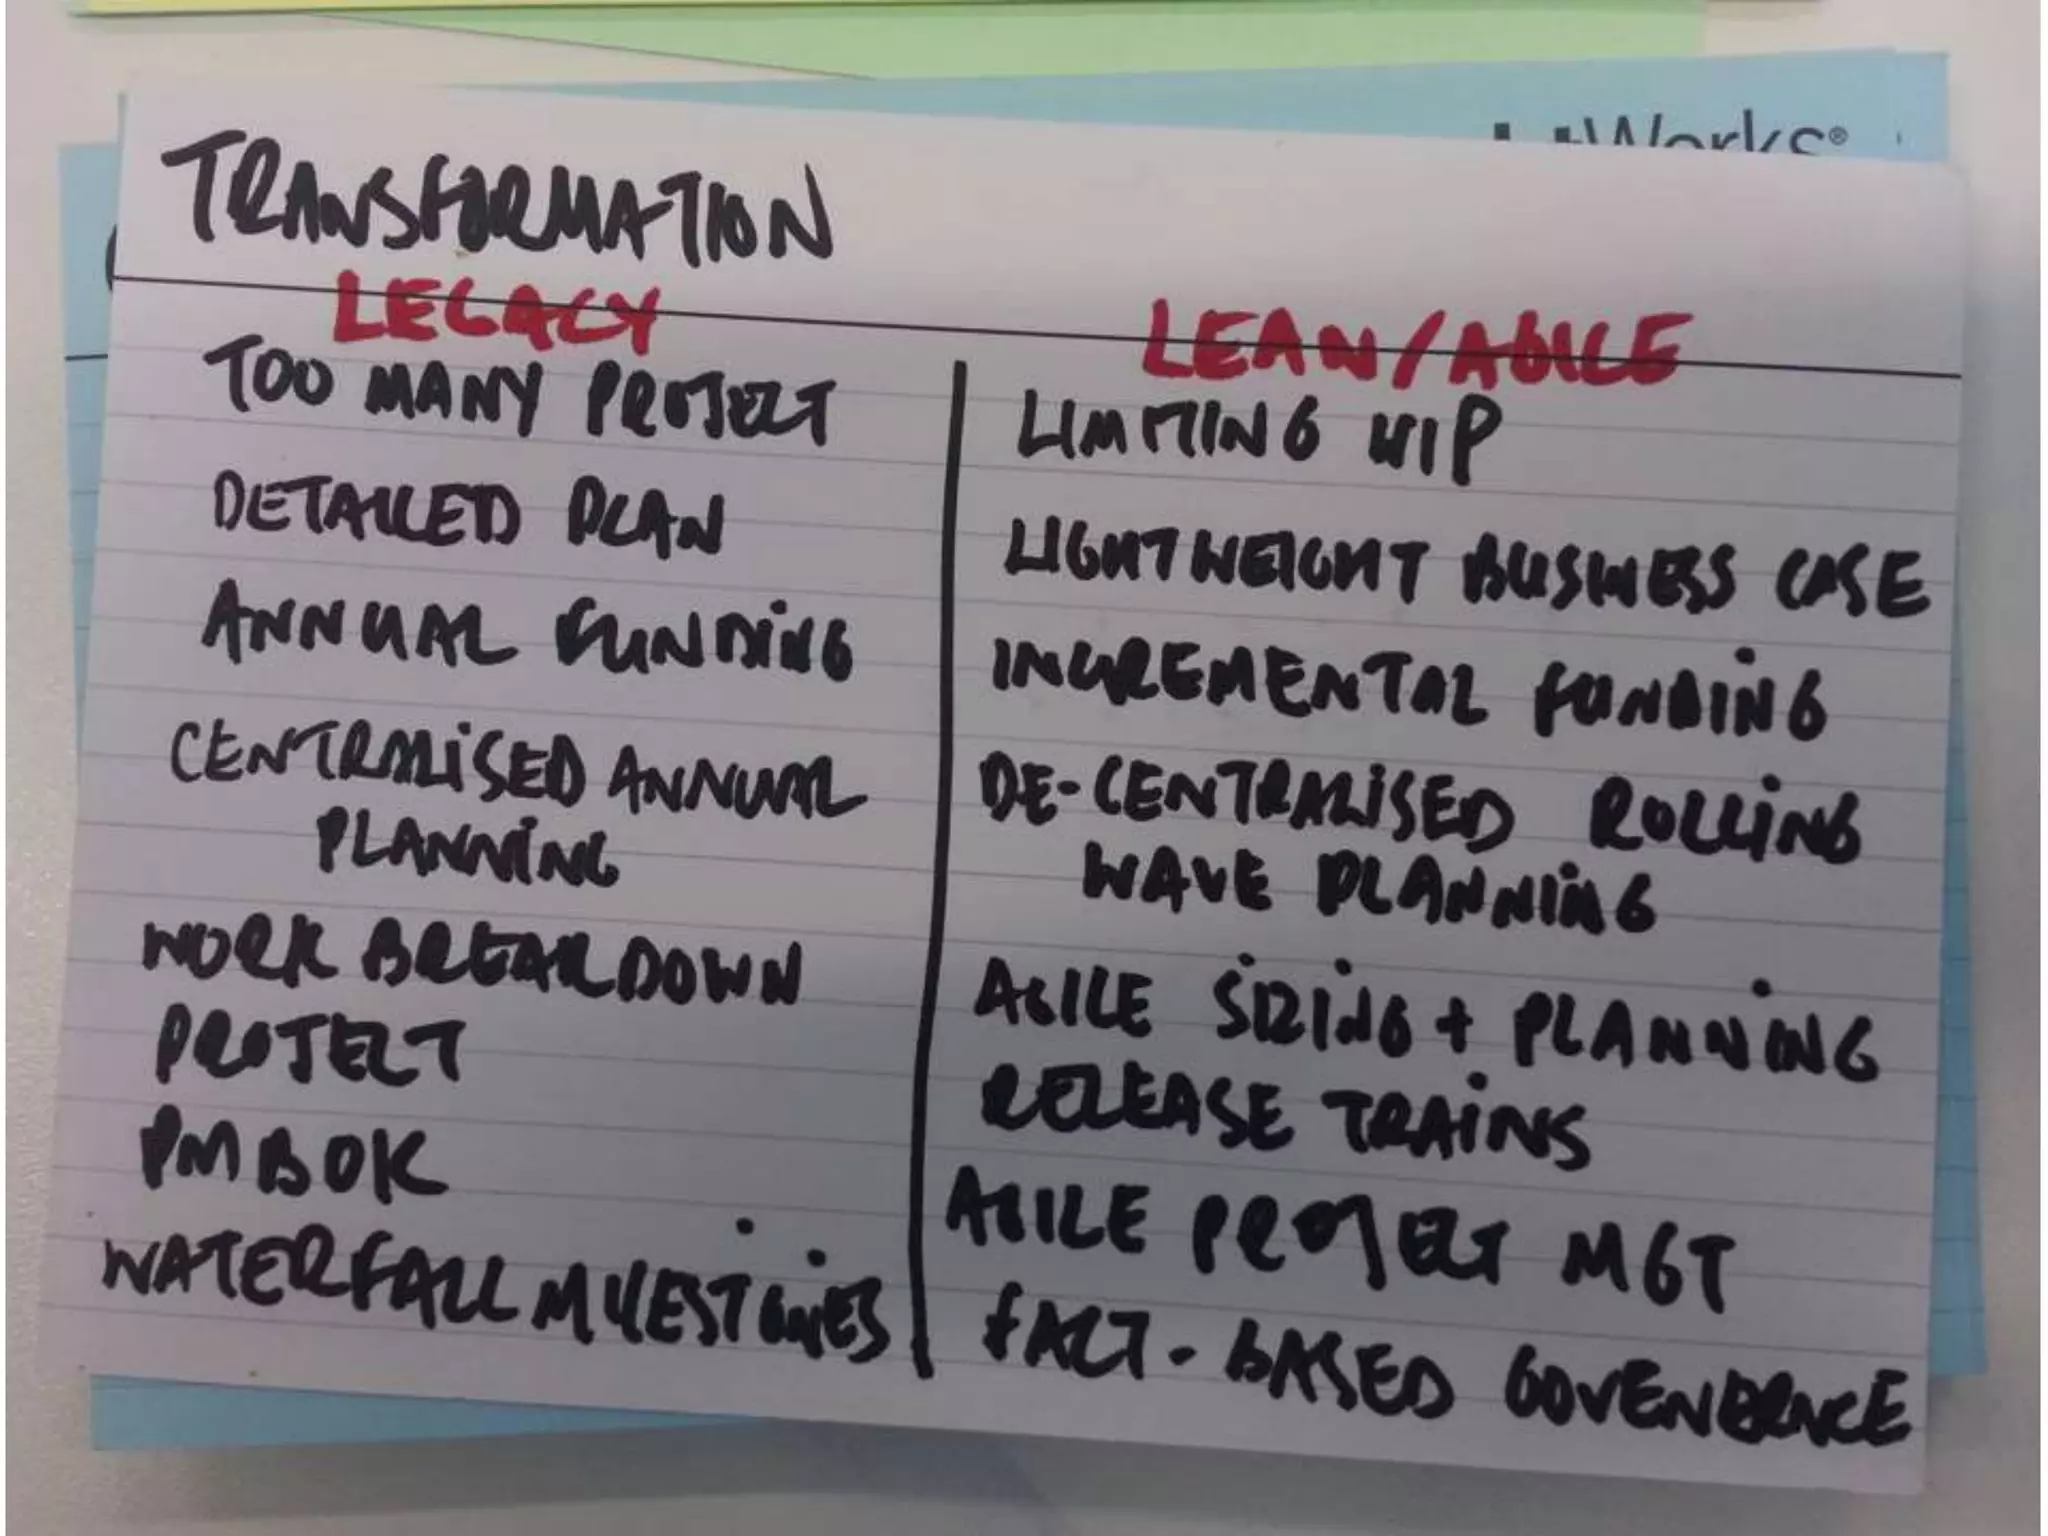 TRANSFORMATION
LEGACY
TOO MANY PROJECT
DETAILED PLAN
ANNUAL FUNDING
CENTRALISED ANNUAL
PLANNING
WORK BREAKDOWN
PROJECT
PMBOK
WATERFALL MILESTONES
LEAN/AGILE
LIMITING WIP
LIGHTWEIGHT BUSINESS CASE
INCREMENTAL FUNDING
DE-CENTRALISED ROLLING
WAVE PLANNING
AGILE SIZING + PLANNING
RELEASE TRAINS
AGILE PROJECT MGT
FACT-BASED